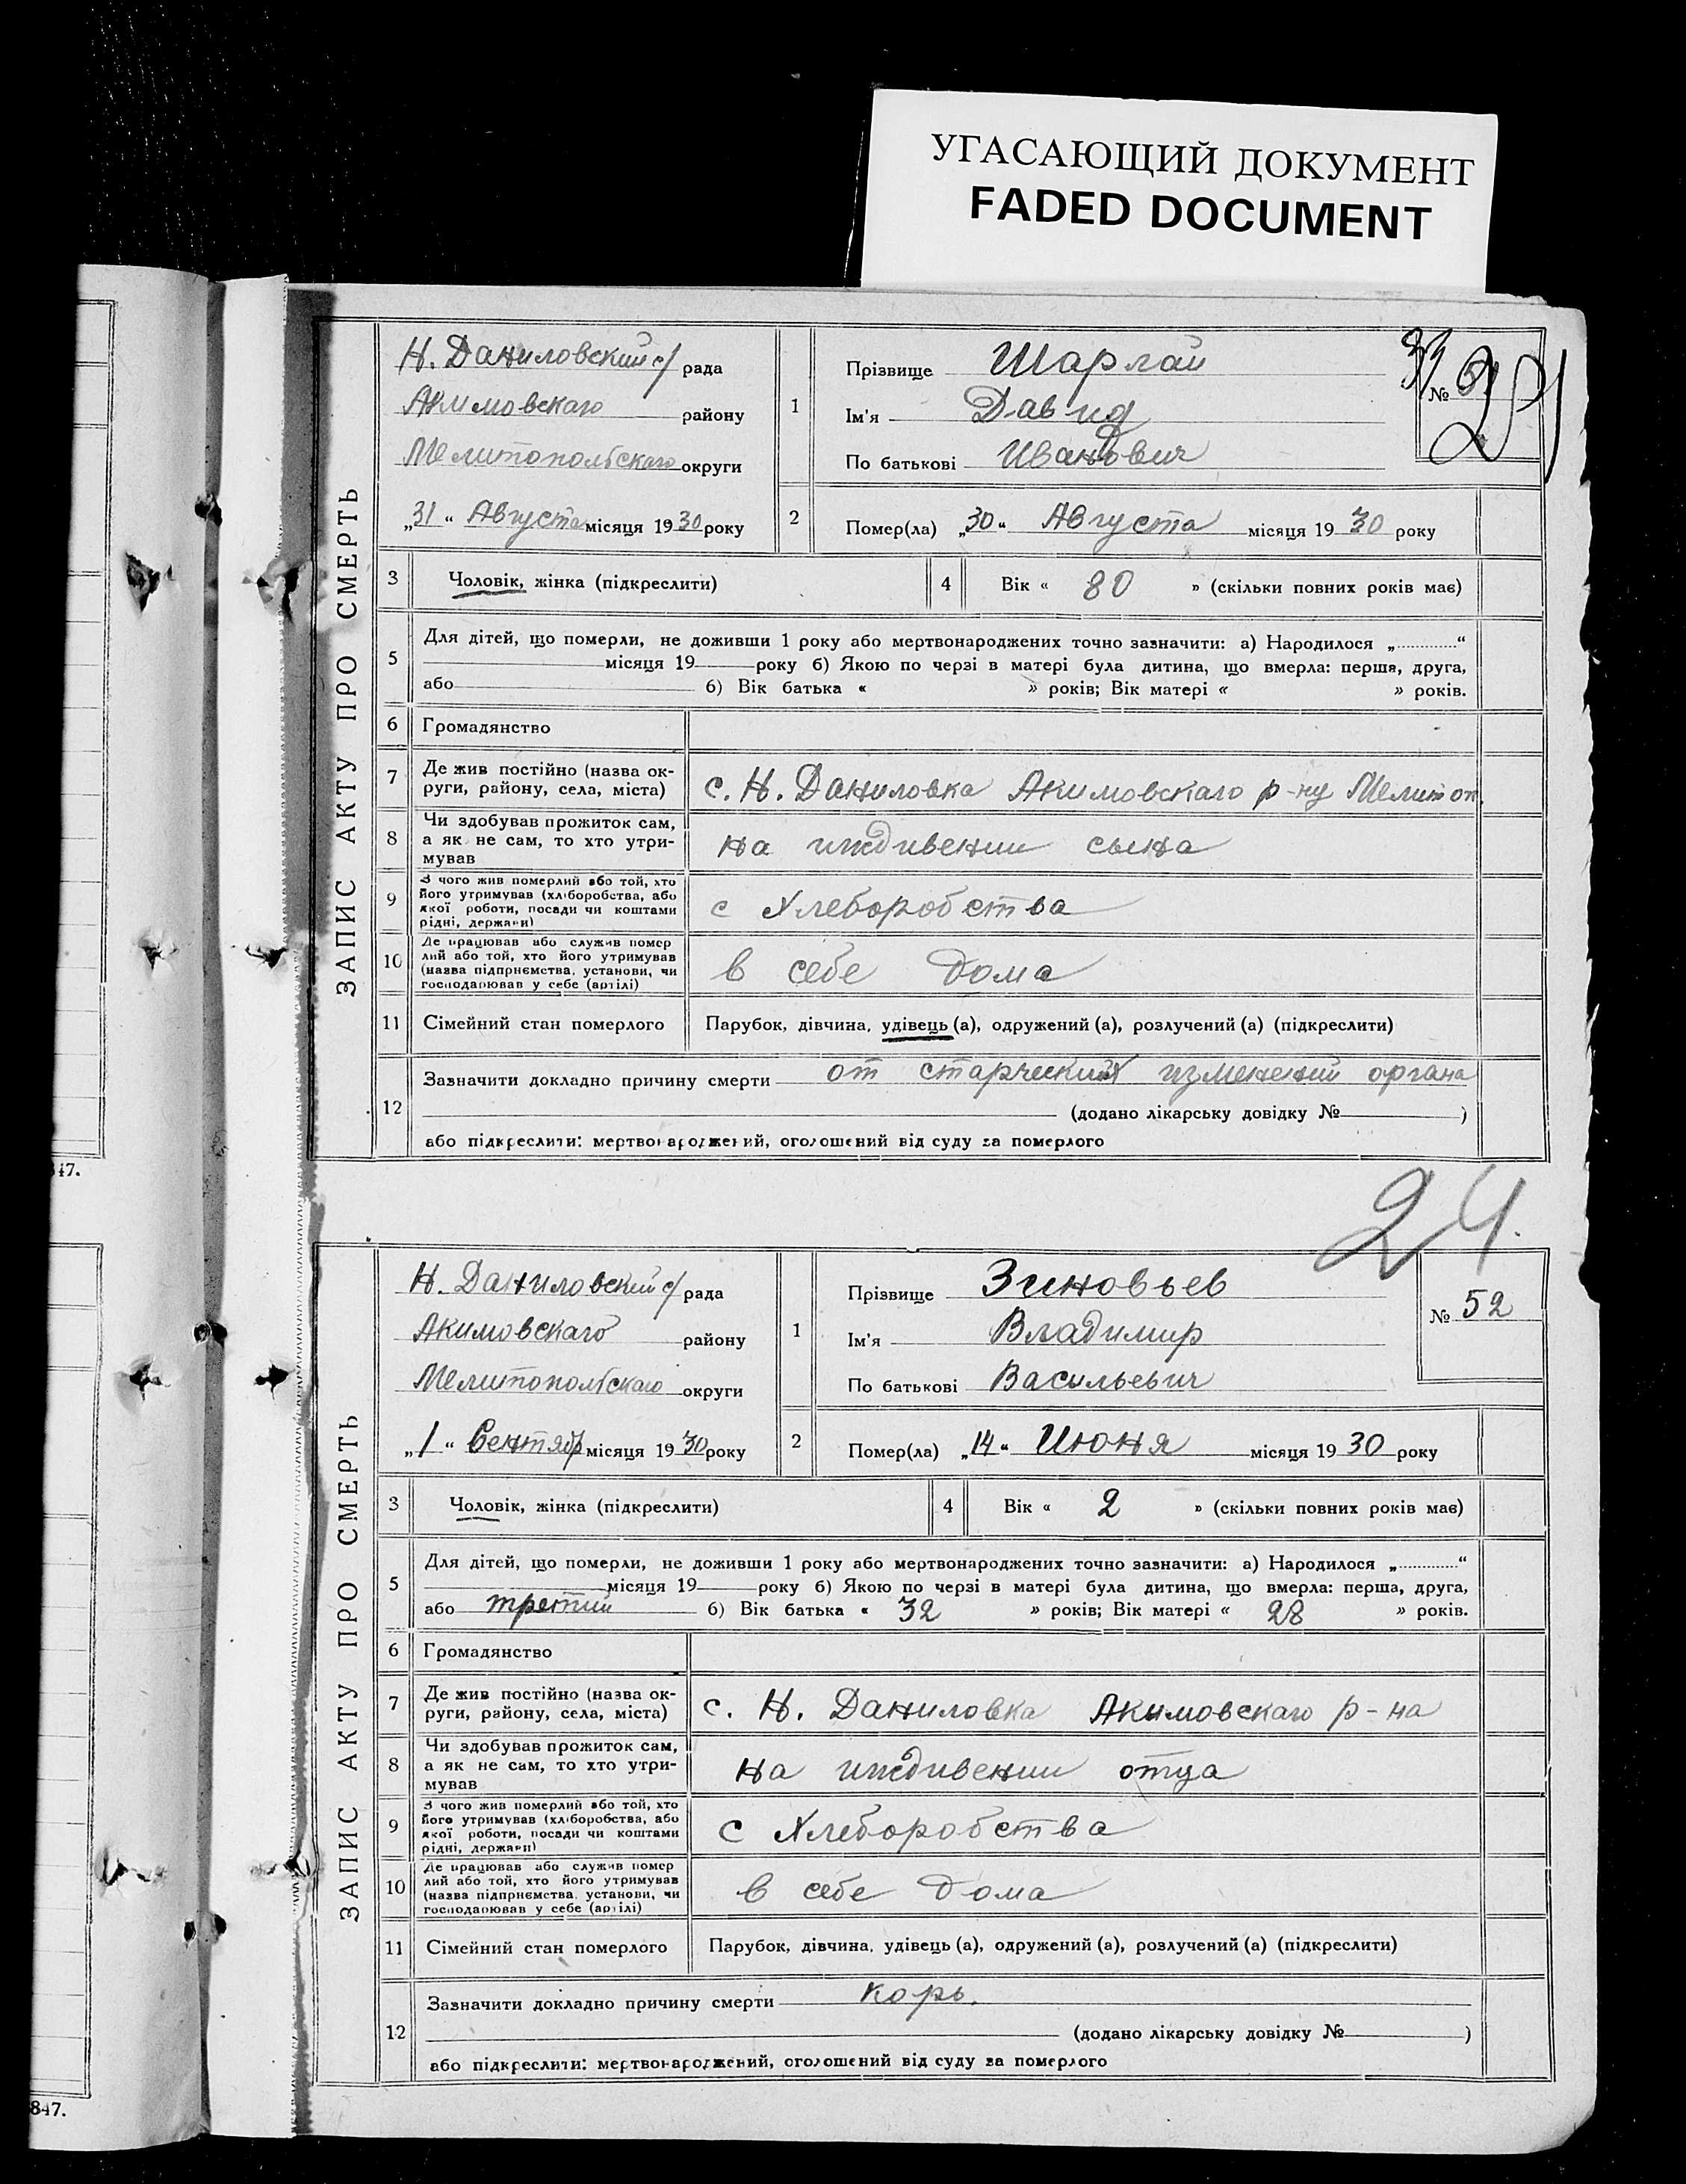 УГАСАЮЩИЙ ДОКУМЕНТ
FADED DOCUMENT
ЗАПИС АКТУ ПРО СМЕРТЬ
Н. Даниловский с/ рада
Акимовскаго району
Мелитопольскаго округи
„31“ Августа місяця 1930 року
1
Прізвище Шарлай
Ім'я Давид
По батькові Иванович
№
2
Помер(ла) „30“ Августа місяця 1930 року
3 Чоловік, жінка (підкреслити)
4 Вік « 80 » (скільки повних років має)
5 Для дітей, що померли, не доживши 1 року або мертвонароджених точно зазначити: а) Народилося „ “
місяця 19 року б) Якою по черзі в матері була дитина, що вмерла: перша, друга,
або б) Вік батька « » років; Вік матері « » років.
6 Громадянство
7 Де жив постійно (назва ок-
руги, району, села, міста)
с. Н. Даниловка Акимовскаго р-ну Мелитоп.
8 Чи здобував прожиток сам,
а як не сам, то хто утри-
мував
на иждивении сына
9 З чого жив померлий або той, хто
його утримував (хліборобства, або
якої роботи, посади чи коштами
рідні, держави)
с Хлеборобства
10 Де працював або служив помер
лий або той, хто його утримував
(назва підприємства, установи, чи
господарював у себе (артілі)
в себе дома
11 Сімейний стан померлого
Парубок, дівчина, удівець (а), одружений (а), розлучений (а) (підкреслити)
12 Зазначити докладно причину смерти от старческий изменений органа
(додано лікарську довідку № )
або підкреслити: мертвонароджений, оголошений від суду за померлого
47.
24.
ЗАПИС АКТУ ПРО СМЕРТЬ
Н. Даниловский с/ рада
Акимовскаго району
Мелитопольскаго округи
„1“ Сентябр місяця 1930 року
1
Прізвище Зиновьев
Ім'я Владимир
По батькові Васильевич
№ 52
2
Помер(ла) „14“ Июня місяця 1930 року
3 Чоловік, жінка (підкреслити)
4 Вік « 2 » (скільки повних років має)
5 Для дітей, що померли, не доживши 1 року або мертвонароджених точно зазначити: а) Народилося „ “
місяця 19 року б) Якою по черзі в матері була дитина, що вмерла: перша, друга,
або третий б) Вік батька « 32 » років; Вік матері « 28 » років.
6 Громадянство
7 Де жив постійно (назва ок-
руги, району, села, міста)
с. Н. Даниловка Акимовскаго р-на
8 Чи здобував прожиток сам,
а як не сам, то хто утри-
мував
на иждивении отца
9 З чого жив померлий або той, хто
його утримував (хліборобства, або
якої роботи, посади чи коштами
рідні, держави)
с Хлеборобства
10 Де працював або служив помер
лий або той, хто його утримував
(назва підприємства, установи, чи
господарював у себе (артілі)
в себе дома
11 Сімейний стан померлого
Парубок, дівчина, удівець (а), одружений (а), розлучений (а) (підкреслити)
12 Зазначити докладно причину смерти корь.
(додано лікарську довідку № )
або підкреслити: мертвонароджений, оголошений від суду за померлого
847.